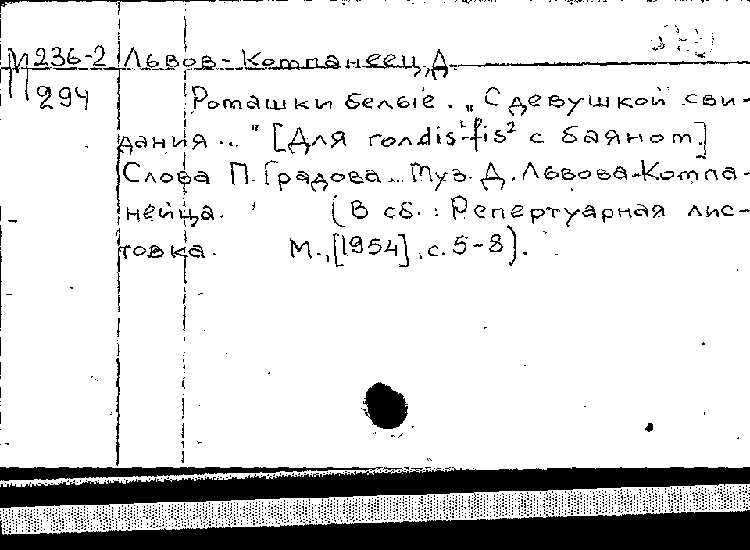 М 236-2 Львов-Компанеец, Д.
294 Ромашки белые. „С девушкой сви-
дания..." [Для гол. dis¹-fis² с баяном.]
Слова П. Градова. Муз. Д. Львова-Компа-
нейца. (В сб.: Репертуарная лис-
товка. М., [1954], с. 5-8).